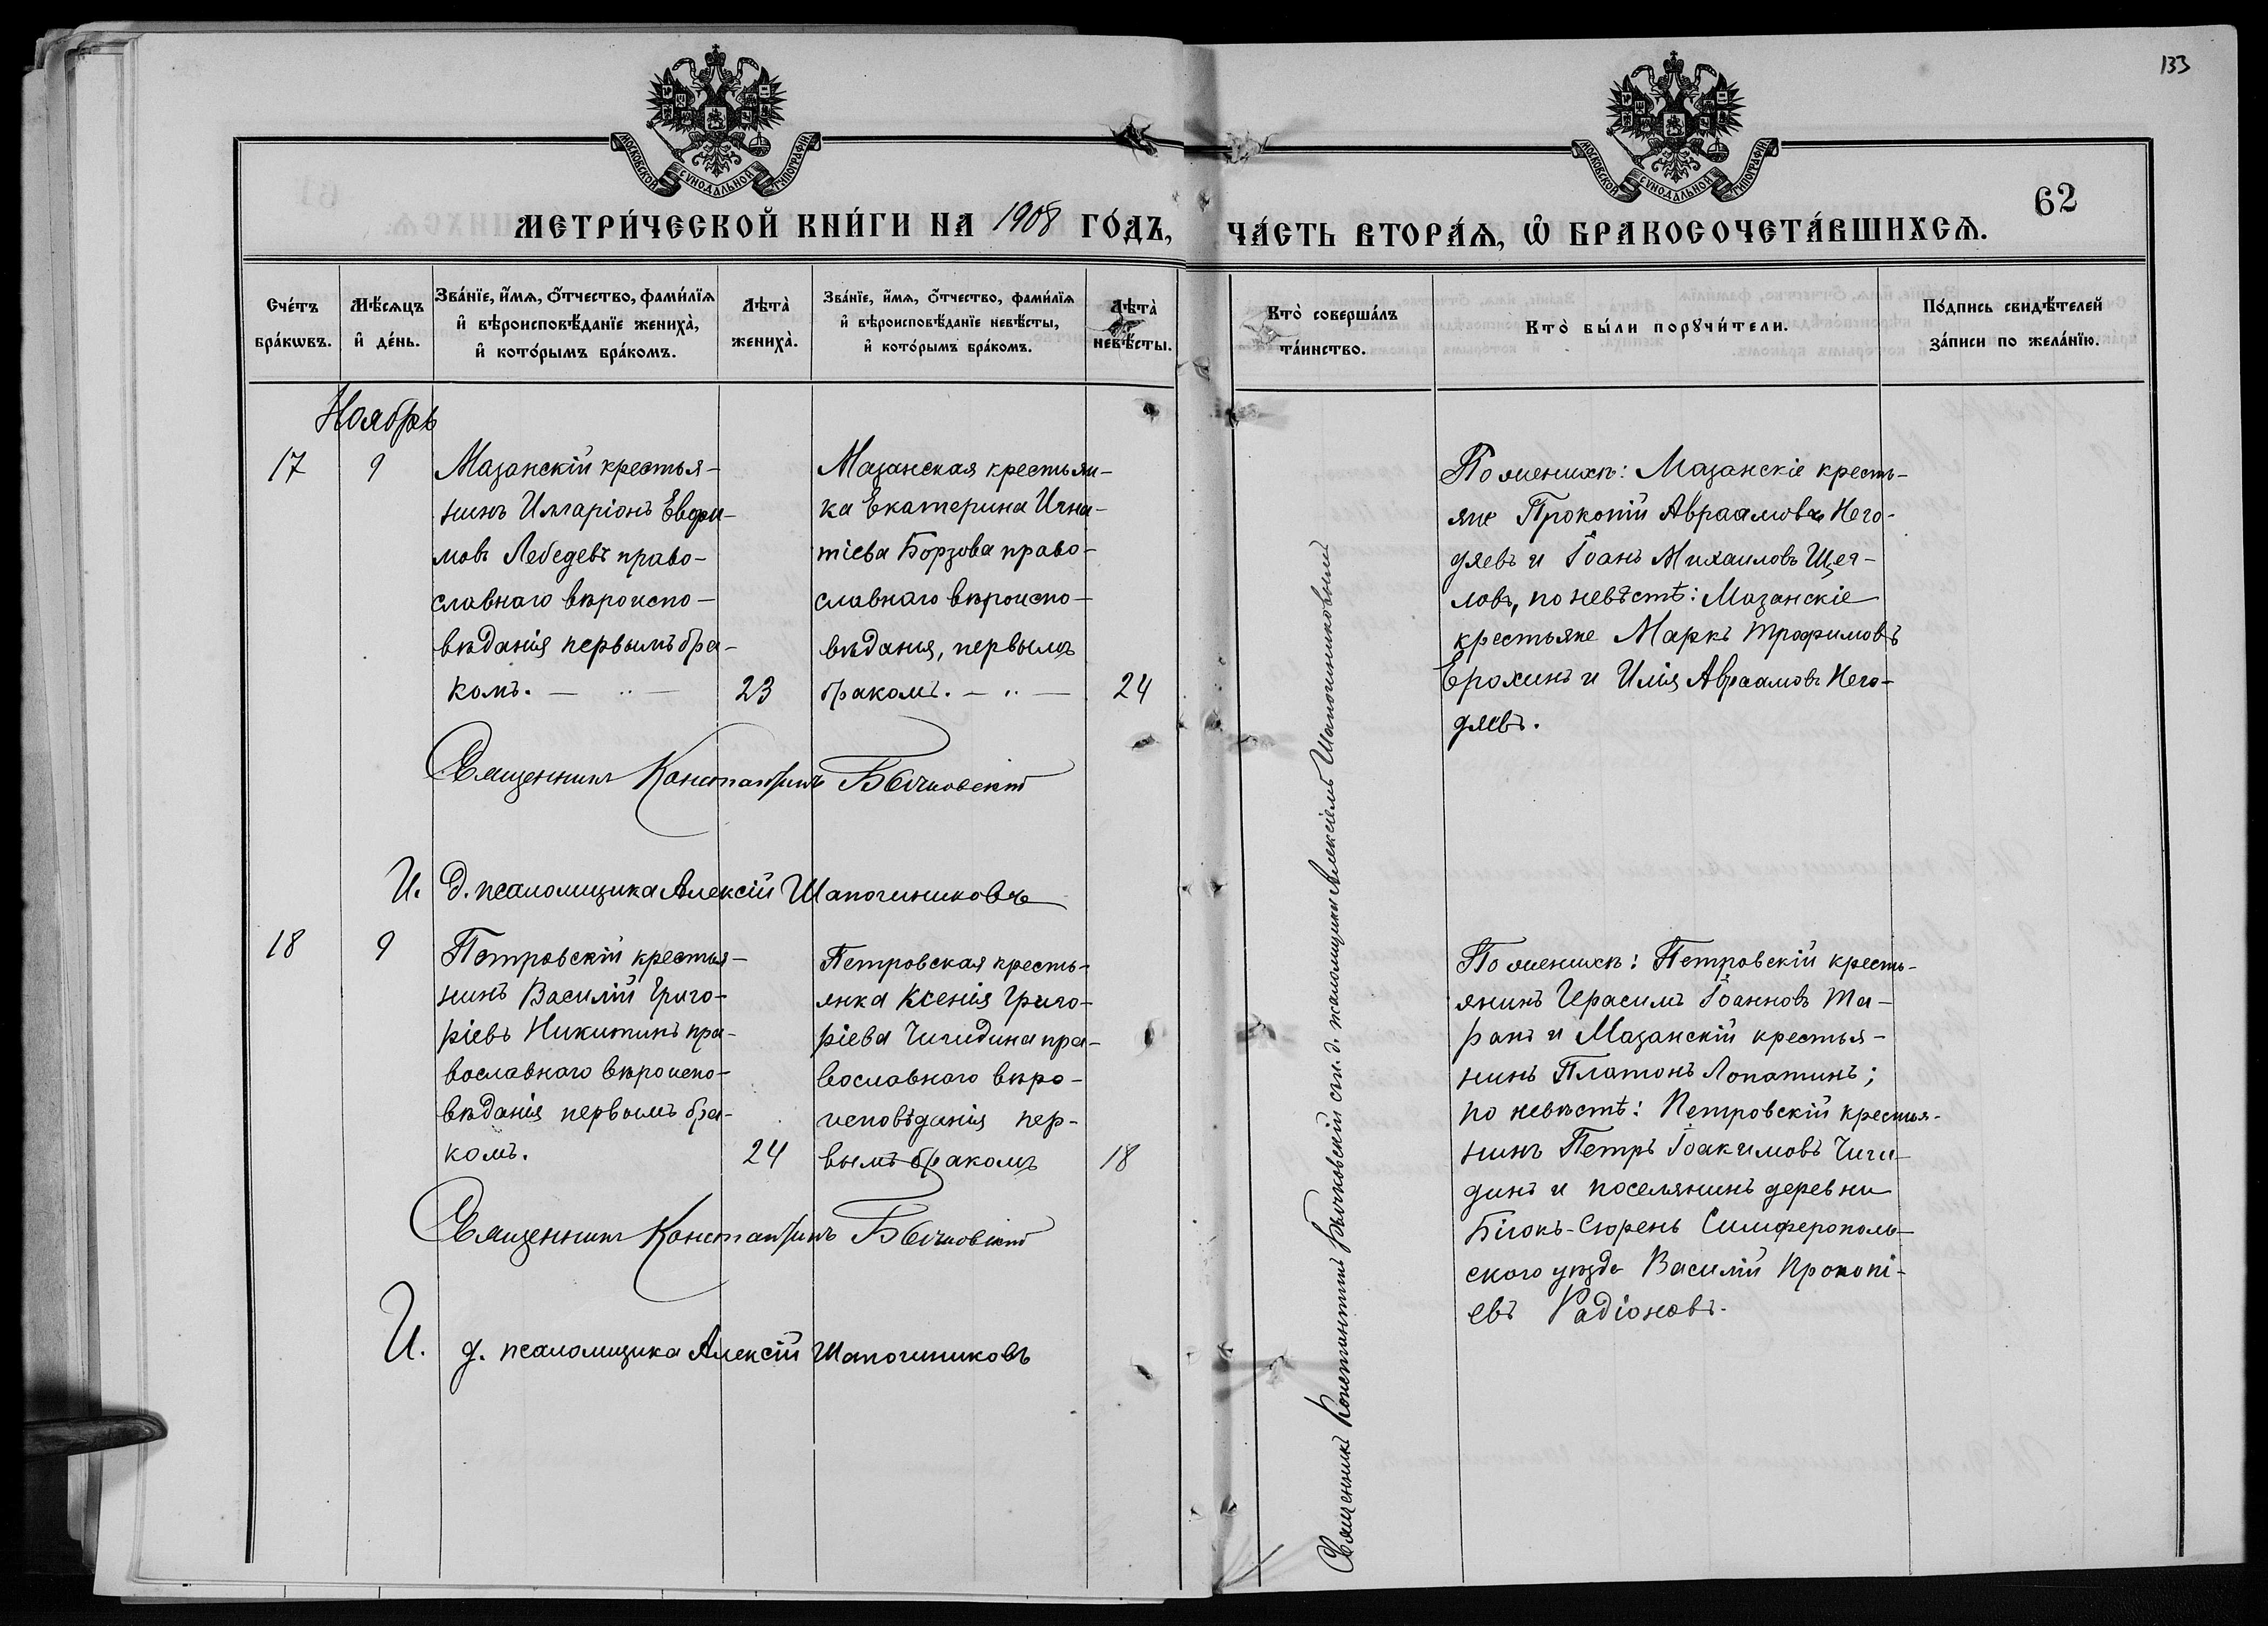 133
МОСКОВСКОЙ СѴНОДАЛЬНОЙ ТИПОГРАФІИ
МОСКОВСКОЙ СѴНОДАЛЬНОЙ ТИПОГРАФІИ
62
МЕТРИ́ЧЕСКОЙ КНИ́ГИ НА 1908 ГО́ДЪ,
ЧА́СТЬ ВТОРА́Ѧ, Ѽ БРАКОСОЧЕТА́ВШИХСѦ.
Сче́тъ
бра́кѡвъ.
Мѣ́сѧцъ
и҆ де́нь.
Зва́нїе, и҆́мѧ, ѻ҆́тчество, фамѝлїѧ
и҆ вѣроисповѣ́данїе жениха̀,
и҆ кото́рымъ бра́комъ.
Лѣта̀
жениха̀.
Зва́нїе, и҆́мѧ, ѻ҆́тчество, фамѝлїѧ
и҆ вѣроисповѣ́данїе невѣ́сты,
и҆ кото́рымъ бра́комъ.
Лѣта̀
невѣ́сты.
Кто̀ соверша́лъ
та́инство.
Кто̀ бы́ли порꙋчи́тели.
По́дпись свидѣ́телей
за́писи по жела́нїю.
Ноябрь
17
9
Мазанскій крестья-
нинъ Илларіонъ Евфи-
мовъ Лебедевъ право-
славнаго вѣроиспо-
вѣданія первымъ бра-
комъ. — „ —
23
Мазанская крестьян-
ка Екатерина Игна-
тіева Борзова право-
славнаго вѣроиспо-
вѣдания, первымъ
бракомъ. — „ —
24
По женихѣ: Мазанскіе кресть-
яне Прокопій Авраамовъ Него-
дяевъ и Іоанъ Михаиловъ Щег-
ловъ, по невѣстѣ: Мазанскіе
крестьяне Маркъ Трофимовъ
Ерохинъ и Илія Авраамовъ Него-
дяевъ.
Священникъ Константинъ Бычковскій
И. д. псаломщика Алексій Шапошниковъ
18
9
Петровскій крестья-
нинъ Василій Григо-
ріевъ Никитинъ пра-
вославнаго вѣроиспо-
вѣданія первымъ бра-
комъ.
24
Петровская кресть-
янка Ксенія Григо-
ріева Чигидина пра-
вославнаго вѣро-
исповѣданія пер-
вымъ бракомъ
18
По женихѣ: Петровскій кресть-
янинъ Герасимъ Іоанновъ Та-
ранъ и Мазанскій крестья-
нинъ Платонъ Лопатинъ;
по невѣстѣ: Петровскій крестья-
нинъ Петръ Іоакимовъ Чиги-
динъ и поселянинъ деревни
Біюкъ-Сюрень Симферополь-
ского уѣзда Василій Прокопі-
евъ Радіоновъ.
Священникъ Константинъ Бычковскій
И. д. псаломщика Алексій Шапошниковъ
Священникъ Константинъ Бычковскій съ и. д. псаломщика Алексіемъ Шапошниковымъ